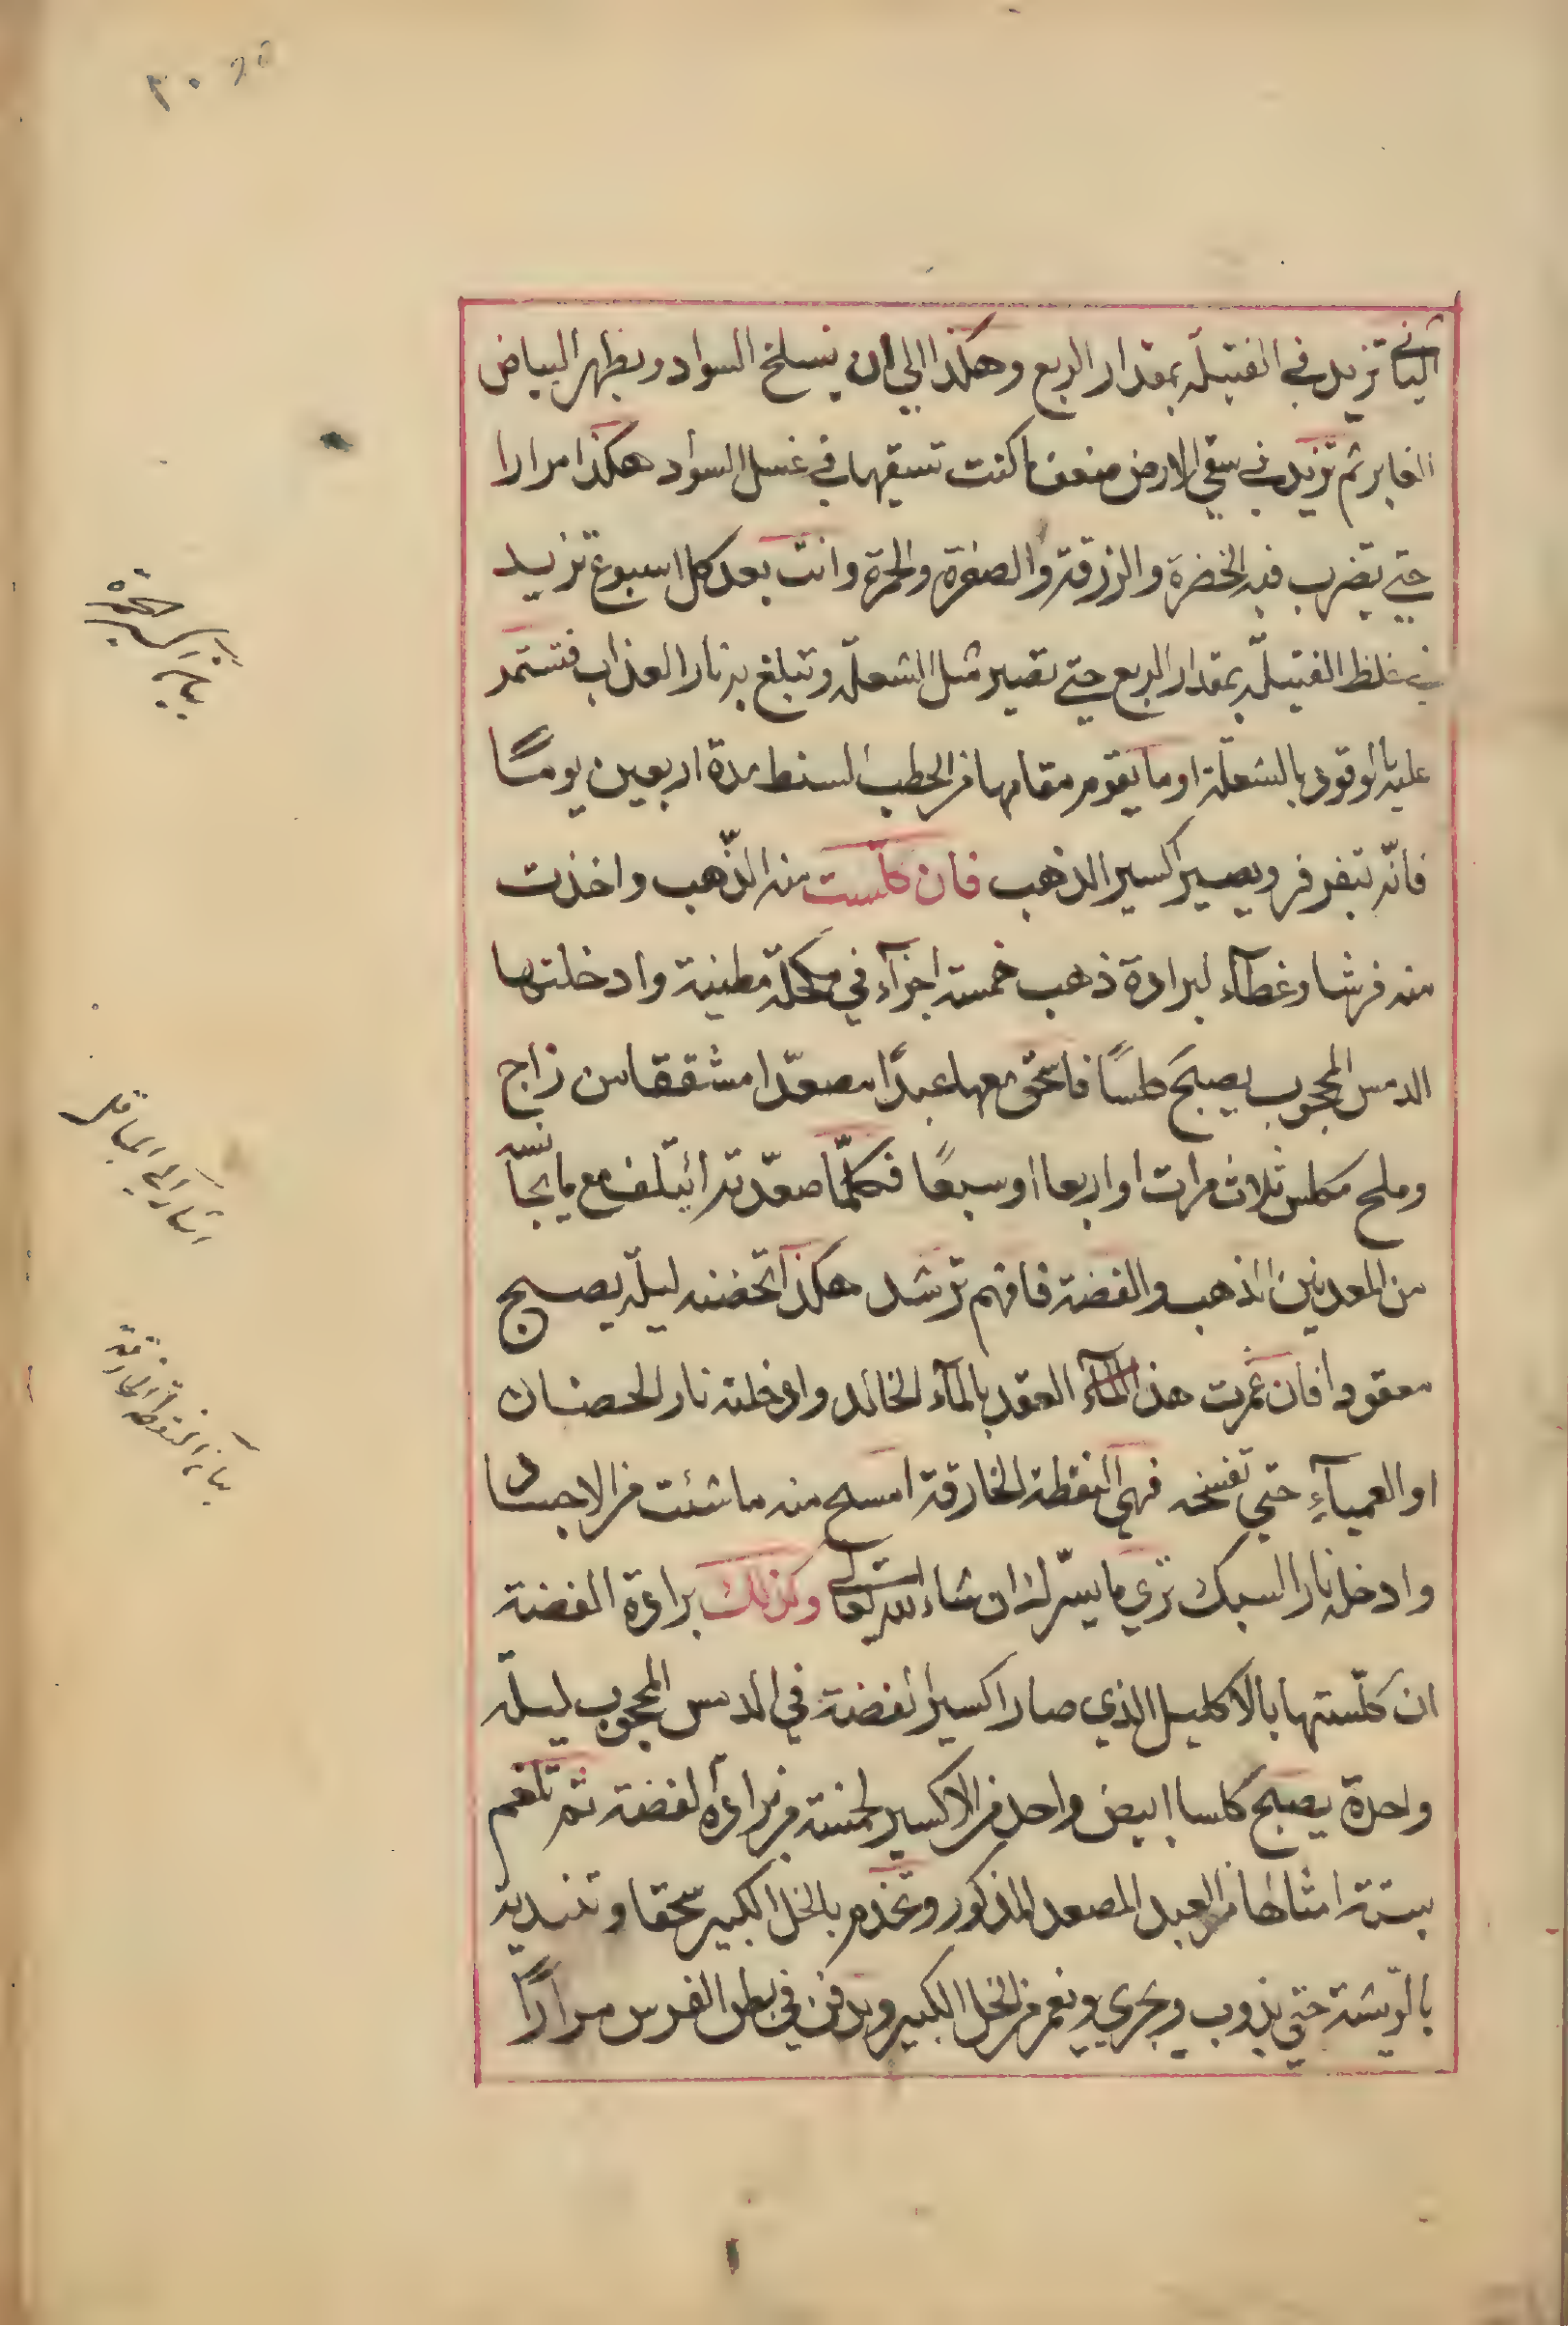 الثاني تزيد في الفتيلة بمقدار الربع وهكذا الى ان ينسلخ السواد ويظهر البياض
الغابر ثم تزيد في سقي الارض ضعف ما كنت تسقيها في غسل السواد هكذا مرارا
حتى يضرب فيه الخضرة والزرقة والصفرة والحمرة وانت بعد كل اسبوع تزيد
في غلظ الفتيلة بمقدار الربع حتى تصير مثل الشعلة وتبلغ به نار العذاب فتستمر
عليه بالوقود بالشعلة او ما يقوم مقامها من الحطب السنط مدة اربعين يومًا
فانّه يتفرفر ويصير اكسير الذهب فان كلّست منه الذّهب واخذت
منه فرشا وغطآء لبرادة ذهب خمسة اجزآء في مكحلة مطينة وادخلتها
الدمس المحجوب يصبح كلسًا فاسحق معها عبدًا مصعّدا مشققا من زاج
وملح مكلس ثلاث مرات او اربعا او سبعًا فكلّما صعّدته ائتلف مع ما يجانسه
من المعدنين الذهب والفضة فافهم ترشد هكذا تحضنه ليلة يصبح
معقودا فان غمرت هذا المآء العقد بالمآء الخالد وادخلته نار الحضان
او العميآء حتى تفسخه فهي النقطة الخارقة امسح منه ما شئت من الاجساد
وادخله نار السبك ترى ما يسرّك ان شاء الله تعالى وكذلك برادة الفضة
ان كلّستها بالاكليل الذي صار اكسير الفضة في الدمس المحجوب ليلة
واحدة يصبح كلسا ابيض واحد من الاكسير لخمسة من برادة الفضة ثم تلغم
بستة امثالها من العبد المصعد المذكور وتخدم بالخل الكبير سحقا وتندية
بالرّيشة حتى يذوب ويجري ويغمر من الخل الكبير ويدفن في بطن الفرس مرارًا
بيان اكسير الحمرة
اشارة الى
بيان النقطة الخارقة